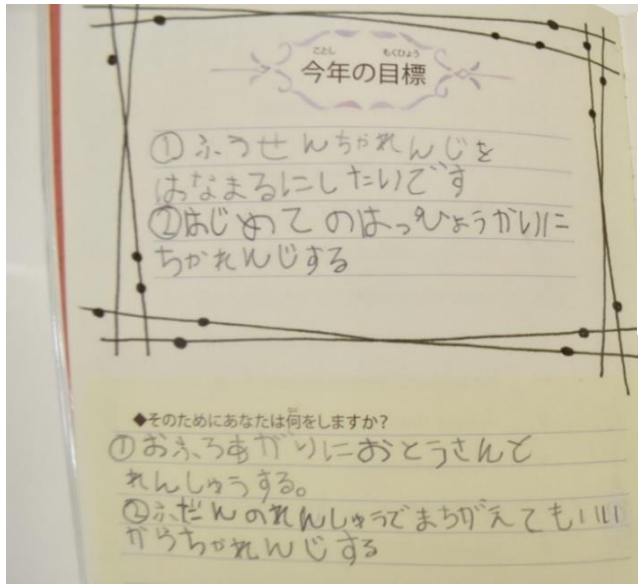 ことし もくひょう
今年の目標
①ふうせんちゃれんじを
はなまるにしたいです
②はじめてのはっぴょうかいに
ちゃれんじする
◆そのためにあなたは何をしますか?
①おふろあがりにおとうさんと
れんしゅうする。
②ふだんのれんしゅうでまちがえてもいい
からちゃれんじする